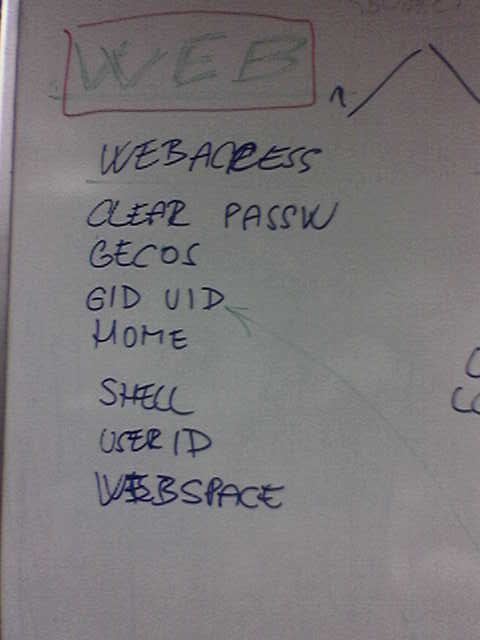 WEB
WEBACCESS
CLEAR PASSW
GECOS
GID UID
HOME
SHELL
USERID
WEBSPACE